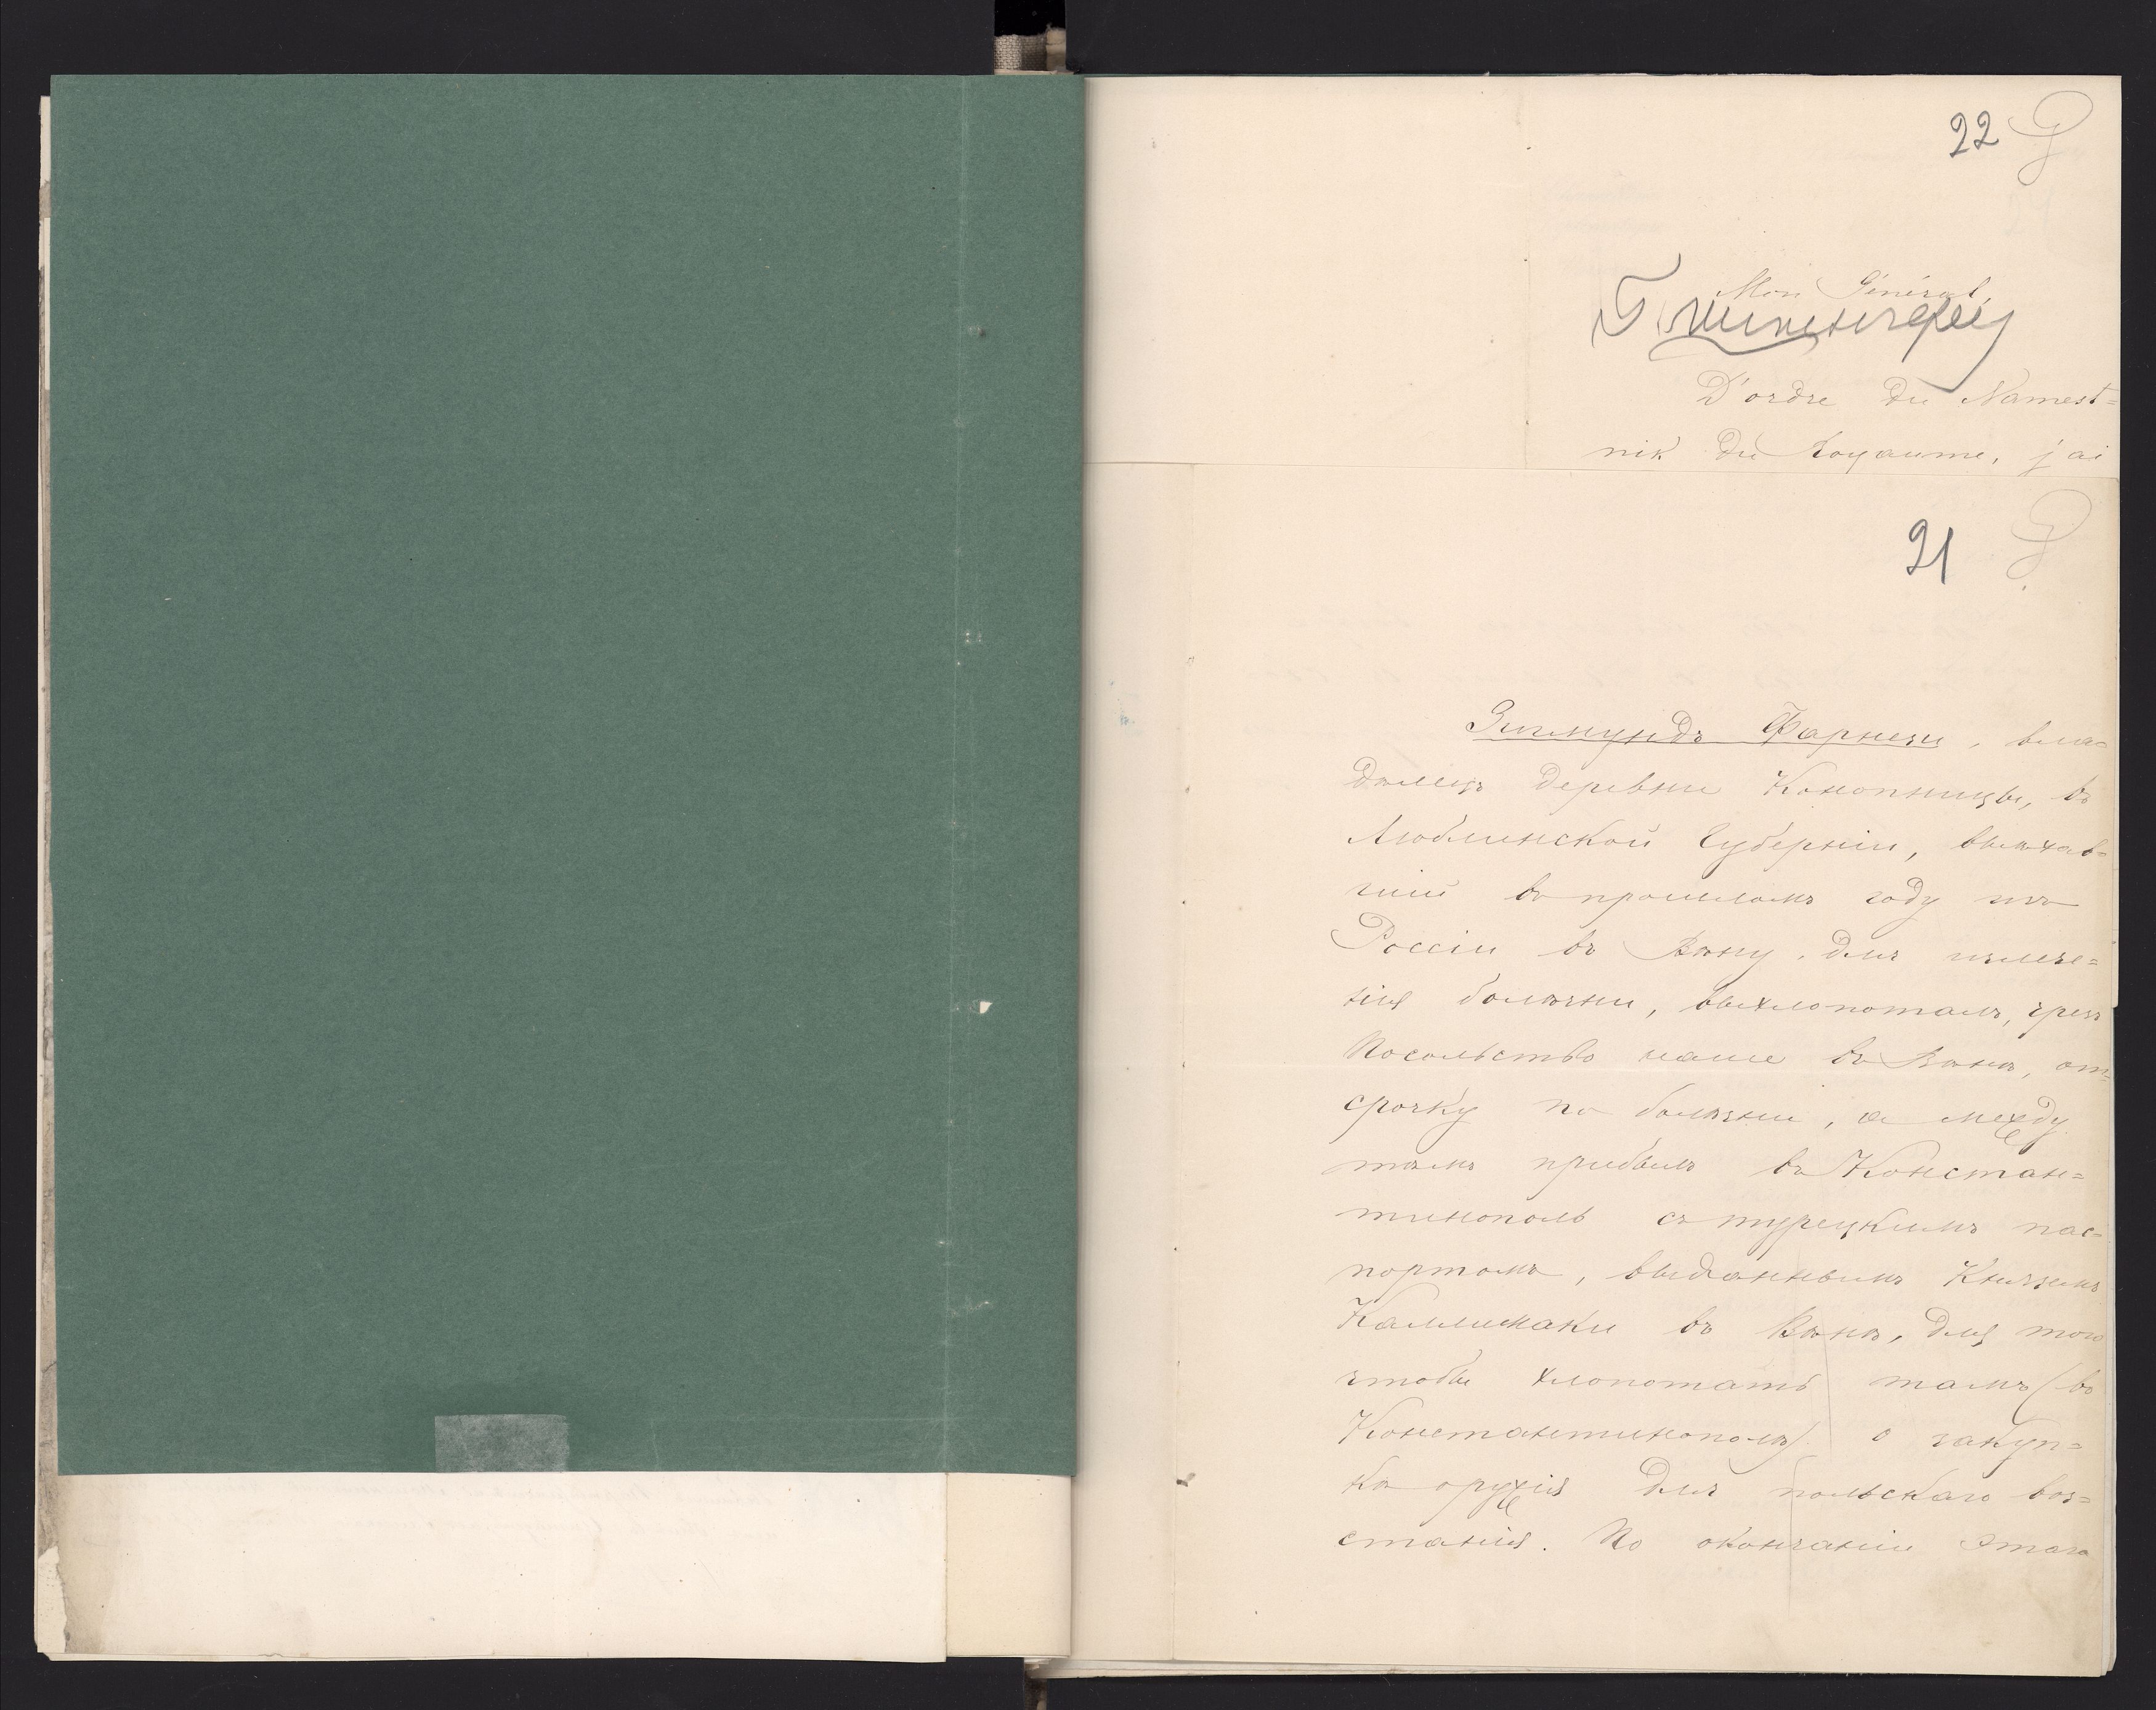 22
Mon Général,
D'ordre du Namest=
nik du Royaume, j'ai
21
Зигмундъ Фарнези, вла=
дѣлецъ деревни Конопницы, въ
Люблинской Губерніи, выѣхав=
шій въ прошломъ году изъ
Россіи въ Вѣну, для излече=
нія болѣзни, выхлопоталъ, чрезъ
Посольство наше въ Вѣнѣ, от=
срочку по болѣзни, а между
тѣмъ прибылъ въ Констан=
тинополь съ турецкимъ пас=
портомъ, выданнымъ Княземъ
Каллимаки въ Вѣнѣ, для того
чтобы хлопотать тамъ (въ
Константинополѣ) о закуп=
кѣ оружія для польскаго воз=
станія. По окончаніи этого